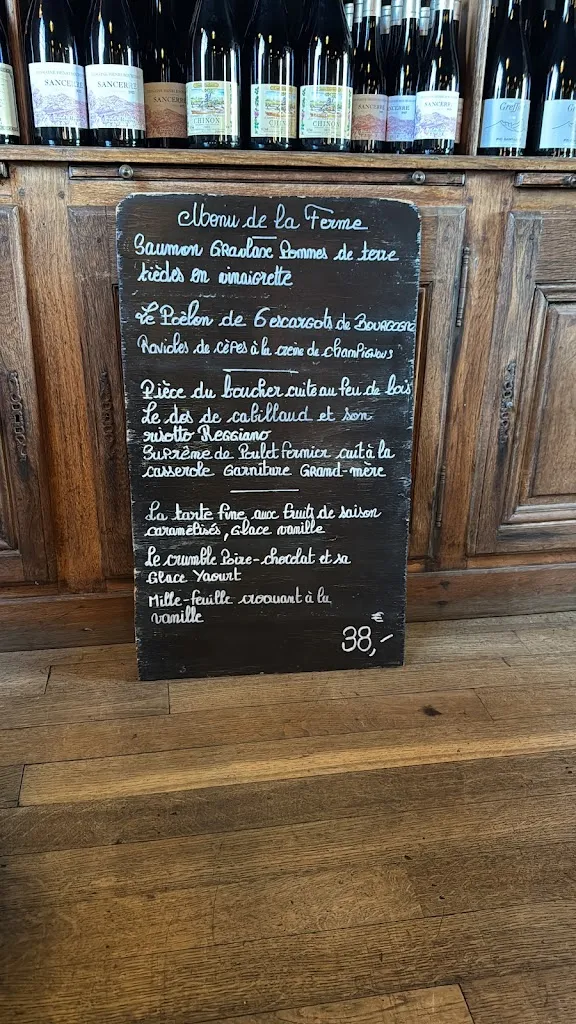 SANCERRE
SANCERRE
SANCERRE
CHINON
CHINON
CHINON
SANCERRE
SANCERRE
SANCERRE
Greffe
Menu de la Ferme
Saumon Gravlaxe Pommes de terre
tièdes en vinaigrette
Le Poêlon de 6 escargots de Bourgogne
Ravioles de cèpes à la crème de champignons
Pièce du boucher cuite au feu de bois
Le dos de cabillaud et son
risotto Reggiano
Suprême de Poulet fermier cuit à la
casserole Garniture Grand-mère
La tarte fine aux fruits de saison
caramélisés, Glace vanille
Le crumble Poire-chocolat et sa
Glace Yaourt
Mille-feuille croquant à la
vanille
38,-€